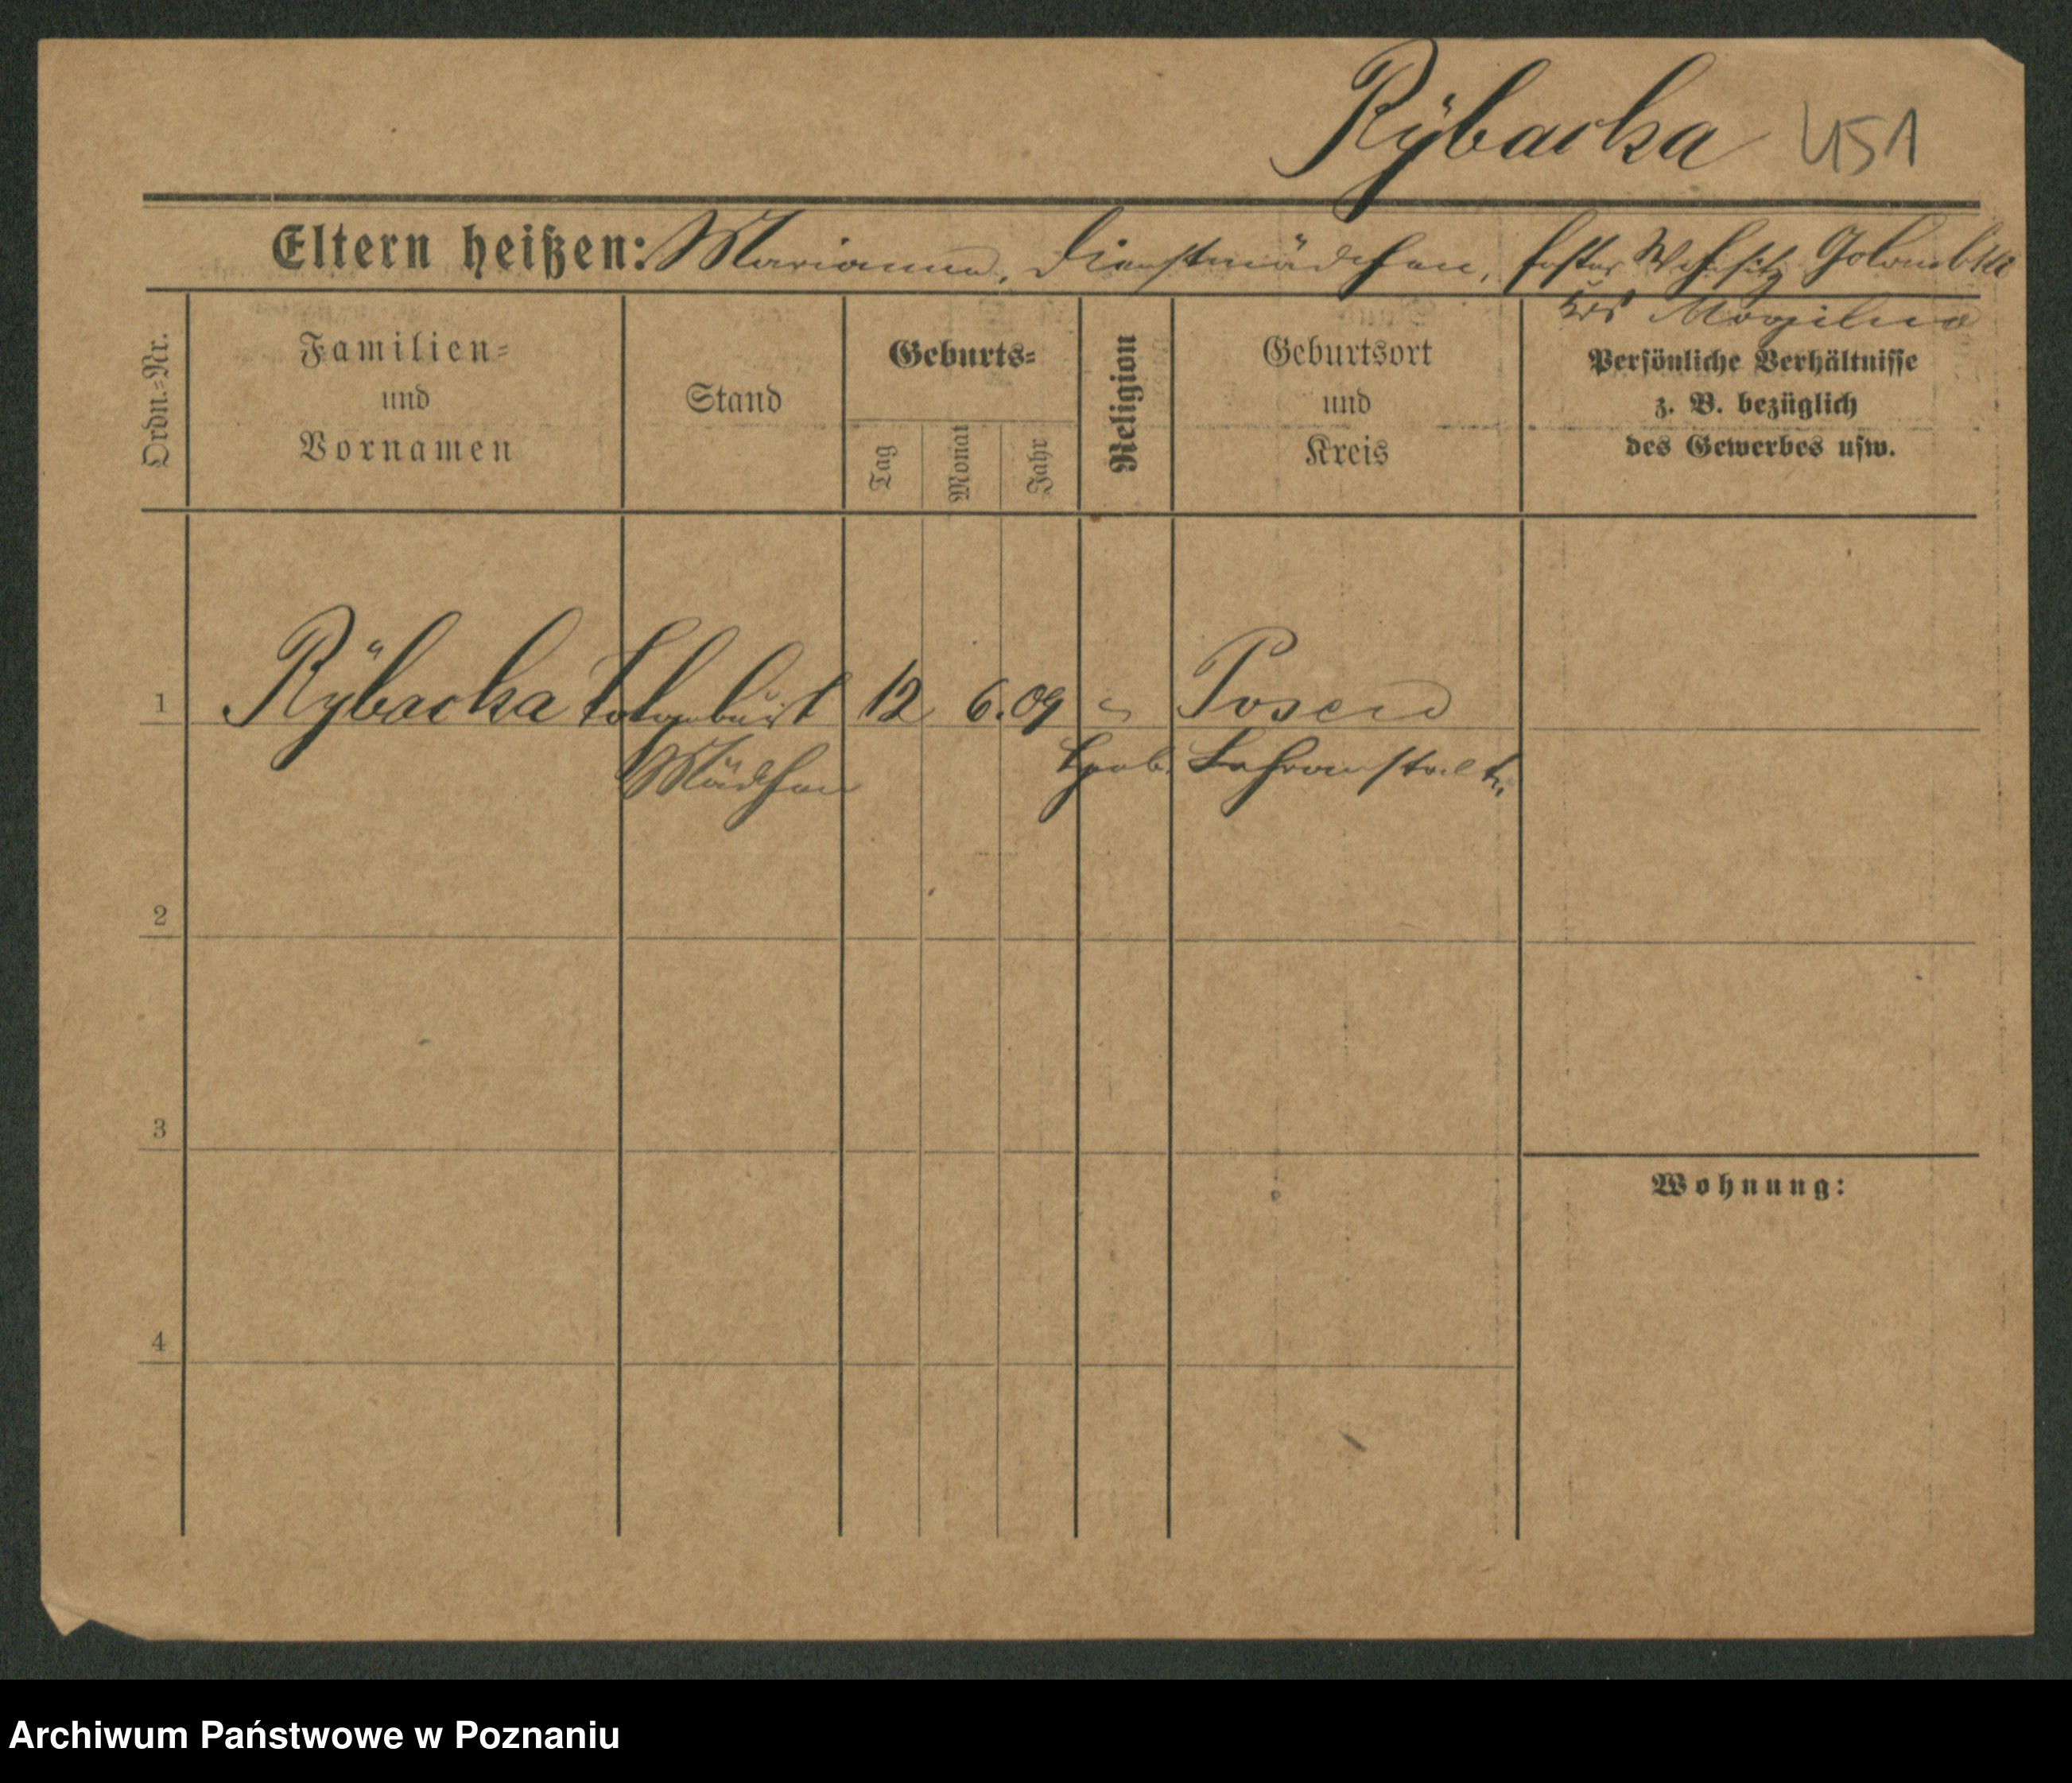 Rÿbacka 451
Eltern heißen: Marianna, Dienstmädchen, fester Wohnsitz Golombki
Krs Mogilno
Ordn.-Nr.
Familien-
und
Vornamen
Stand
Geburts-
Tag
Monat
Jahr
Religion
Geburtsort
und
Kreis
Persönliche Verhältnisse
z. B. bezüglich
des Gewerbes usw.
1 Rÿbacka Totgeburt 12 6. 09 Posen
Mädchen Heb. Lehranstalt
2
3
Wohnung:
4
Archiwum Państwowe w Poznaniu